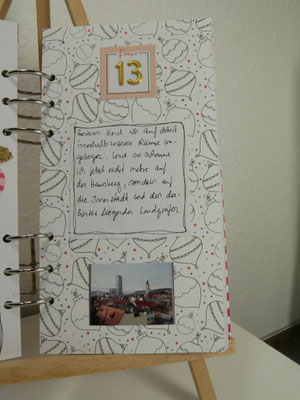 13
Gestern sind wir auf Arbeit
innerhalb unserer Räume um-
gezogen. Und so schaue
ich jetzt nicht mehr auf
den Hausberg, sondern auf
die Innenstadt und den da-
hinter liegenden Landgrafen.